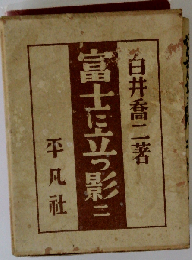 白井喬二著
富士に立つ影 二
平凡社